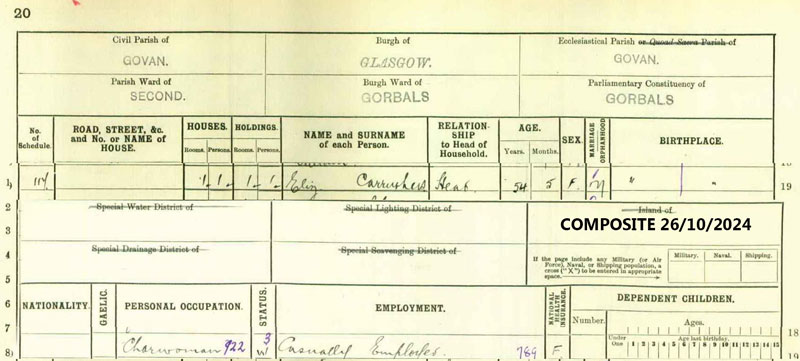 20
Civil Parish of
GOVAN.
Burgh of
GLASGOW.
Ecclesiastical Parish or Quoad Sacra Parish of
GOVAN.
Parish Ward of
SECOND.
Burgh Ward of
GORBALS
Parliamentary Constituency of
GORBALS
No. of Schedule.
ROAD, STREET, &c. and No. or NAME of HOUSE.
HOUSES.
Rooms. Persons.
HOLDINGS.
Rooms. Persons.
NAME and SURNAME of each Person.
RELATIONSHIP to Head of Household.
AGE.
Years. Months.
SEX.
MARRIAGE or ORPHANHOOD
BIRTHPLACE.
19 117 1 1 1 1 Eliz Carruthers Head 54 5 F. " " 19
2 Special Water District of
Special Lighting District of
Island of
COMPOSITE 26/10/2024
3
4 Special Drainage District of
Special Scavenging District of
If the page include any Military (or Air Force), Naval, or Shipping population, a cross ("X") to be entered in appropriate space.
Military. Naval. Shipping.
5
6 NATIONALITY. GAELIC. PERSONAL OCCUPATION. STATUS. EMPLOYMENT. NATIONAL HEALTH INSURANCE. DEPENDENT CHILDREN.
7 Number. Ages.
Under One Age last birthday.
1 2 3 4 5 6 7 8 9 10 11 12 13 14 15
18
8 Charwoman 922 3 W Casually Employed. 789 F 19